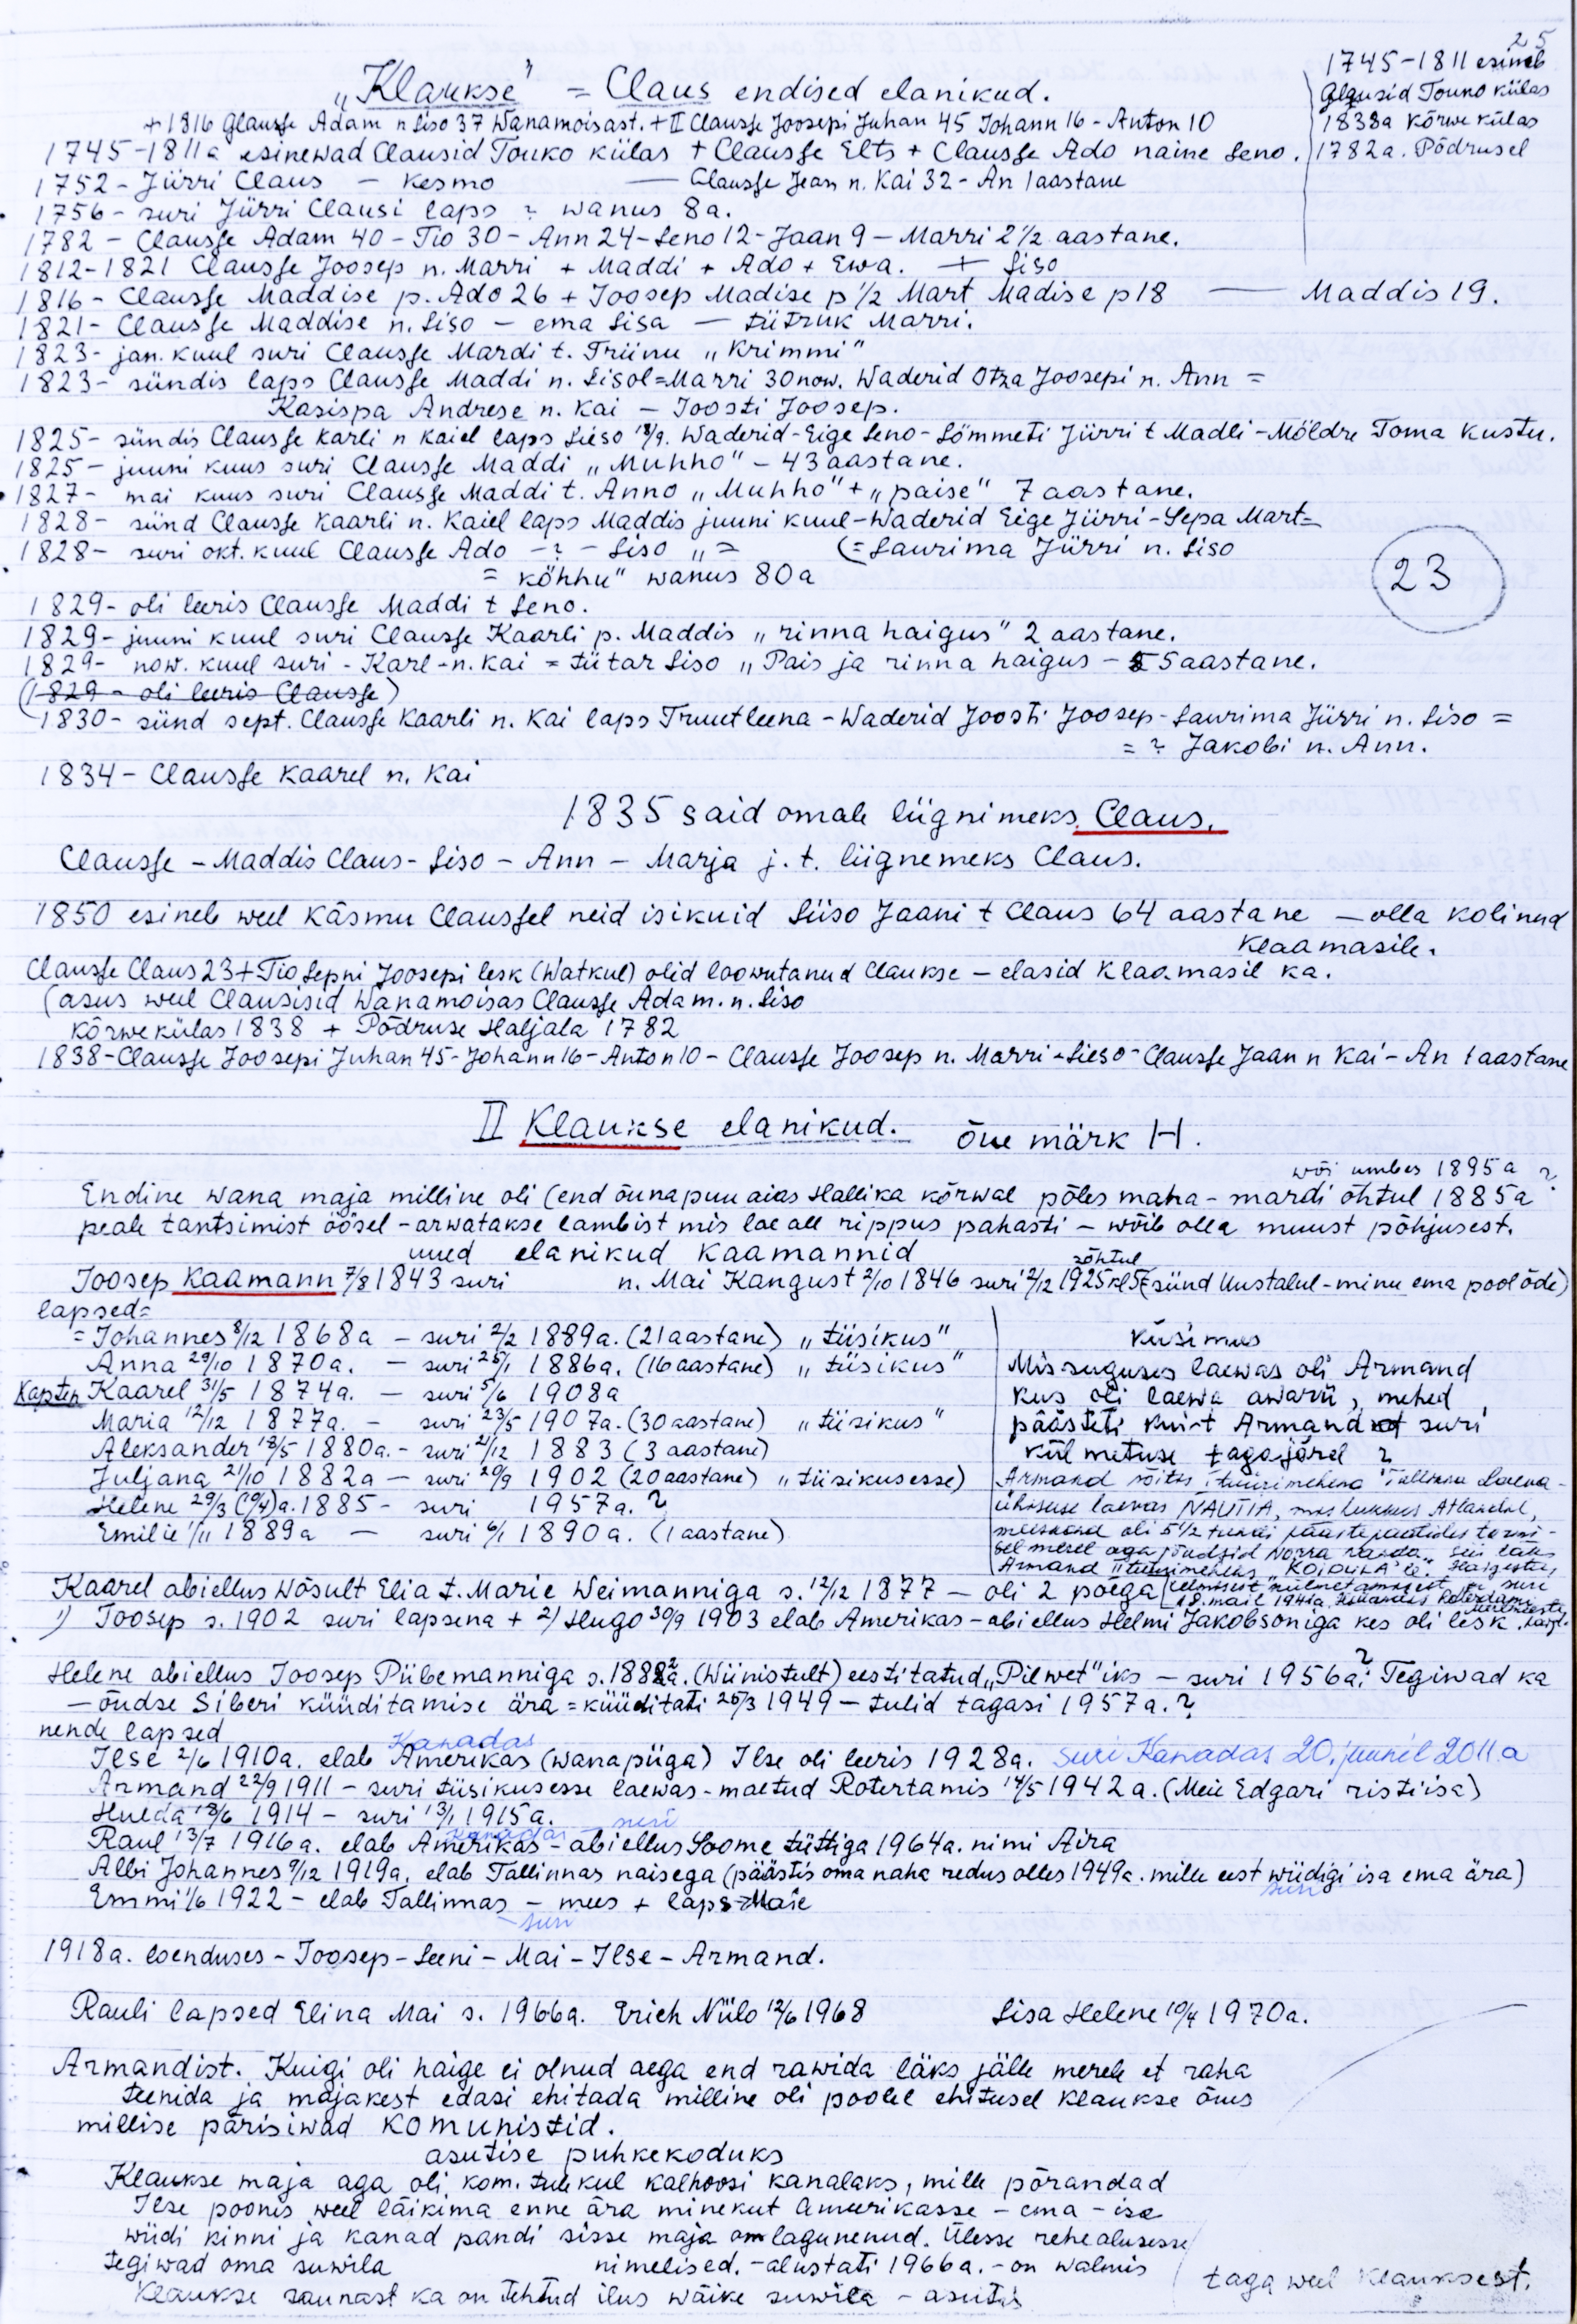 25
1745-1811 esineb
Clausid Touko külas
1838a Kõrwe külas
1782a. Põdrusel
„Klaukse" = Claus endised elanikud.
+1816 Clausse Adam n Liso 37 Wanamoisast. + II Clausse Joosepi Juhan 45 Johann 16 - Anton 10
1745-1811a esinewad Clausid Touko külas + Clausse Elts + Clausse Ado naine Leno.
1752 - Jürri Claus - Kesmo — Clausse Jean n. Kai 32 - An 1 aastane
1756 - suri Jürri Clausi laps ? wanus 8a.
1782 - Clausse Adam 40 - Tio 30 - Ann 24 - Leno 12 - Jaan 9 - Marri 2 1/2 aastane.
1812-1821 Clausse Joosep n. Marri + Maddi + Ado + Ewa. + Liso
1816 - Clausse Maddise p. Ado 26 + Joosep Madise p 1/2 Mart Madise p 18 — Maddis 19.
1821 - Clausse Maddise n. Liso - ema Lisa - tütruk Marri.
1823 - jan. kuul suri Clausse Mardi t. Triinu „Krimmi"
1823 - sündis laps Clausse Maddi n. Lisol = Marri 30 now. Waderid Otza Joosepi n. Ann =
Kasispa Andrese n. Kai - Joosti Joosep.
1825 - sündis Clausse Karli n Kaiel laps Lieso 18/9. Waderid - Eige Leno - Lömmeti Jürri t Madli - Möldre Toma Kustu.
1825 - juuni kuus suri Clausse Maddi „Muhho" - 43 aastane.
1827 - mai kuus suri Clausse Maddi t. Anno „Muhho" + „paise" 7 aastane.
1828 - sünd Clausse Kaarli n. Kaiel laps Maddis juuni kuul - Waderid Eige Jürri - Sepa Mart =
1828 - suri okt. kuul Clausse Ado - ? - Liso „ = (= Laurima Jürri n. Liso
= köhhu" wanus 80a
23
1829 - oli leeris Clausse Maddi t Leno.
1829 - juuni kuul suri Clausse Kaarli p. Maddis „rinna haigus" 2 aastane.
1829 - now. kuul suri - Karl - n. Kai = tütar Liso „Pais ja rinna haigus - 5 aastane.
(1829 - oli leeris Clausse)
1830 - sünd sept. Clausse Kaarli n. Kai laps Truutleena - Waderid Joosti Joosep - Laurima Jürri n. Liso =
= ? Jakobi n. Ann.
1834 - Clausse Kaarel n. Kai
1835 said omale liignimeks Claus.
Clausse - Maddis Claus - Liso - Ann - Marja j. t. liignemeks Claus.
1850 esineb weel Käsmu Claussel neid isikuid Liiso Jaani t Claus 64 aastane — olla kolinud
Klaamasile.
Clausse Claus 23 + Tio Sepni Joosepi lesk (Watkul) olid loowutanud Claukse - elasid Klaamasil ka.
(asus weel Clausisid Wanamoisas Clausse Adam. n. Liso
Kõrwe külas 1838 + Põdruse Haljala 1782
1838 - Clausse Joosepi Juhan 45 - Johann 16 - Anton 10 - Clausse Joosep n. Marri - Lieso - Clausse Jaan n Kai - An 1 aastane
II Klaukse elanikud. õue märk H.
wõi umbes 1895a ?
Endine wana maja milline oli (end õunapuu aias Hallika kõrwal põles maha - mardi õhtul 1885a
peale tantsimist öösel - arwatakse lambist mis lae all rippus pahasti - wõib olla muust põhjusest.
uued elanikud Kaamannid
Joosep Kaamann 7/8 1843 suri n. Mai Kangust 2/10 1846 suri 2/12 1925 kl 5 õhtul (sünd Uustalul - minu ema pool õde)
lapsed =
= Johannes 8/12 1868a - suri 2/2 1889a. (21 aastane) „tiisikus"
Anna 29/10 1870a. - suri 25/1 1886a. (16 aastane) „tiisikus"
Kapten Kaarel 31/5 1874a. - suri 5/6 1908a
Maria 12/12 1877a. - suri 23/5 1907a. (30 aastane) „tiisikus"
Aleksander 18/5 1880a. - suri 21/12 1883 (3 aastane)
Juljana 21/10 1882a - suri 20/9 1902 (20 aastane) „tiisikusesse)
Helene 29/3 (10/4)a. 1885 - suri 1957a. ?
Emilie 1/11 1889a — suri 6/1 1890a. (1 aastane)
Küsimus
Missuguses laewas oli Armand
kus oli laewa awarii, mehed
päästeti kuit Armand suri
külmetuse tagajärel ?
Armand sõitis tüürimehena Tallinna Laeva-
ühisuse laevas NAUTIA, mis hukkus Atlandil,
meeskond oli 5 1/2 tundi päästepaatides tormi-
sel merel aga jõudsid Norra randa. Siis läks
Armand II tüürimeheks „KOIDULA" le. Haigestus
külmetamisest ja suri
18. mail 1941a.
Kaarel abiellus Wõsult Elia t. Marie Weimanniga s. 12/12 1877 - oli 2 poega
1) Joosep s. 1902 suri lapsena + 2) Hugo 30/9 1903 elab Amerikas - abiellus Helmi Jakobsoniga kes oli lesk.
Helene abiellus Joosep Piibemanniga s. 1882a. (Wiinistult) eestitatud „Pilwet"iks - suri 1956a ? Tegiwad ka
- õudse Siberi küüditamise ära = küüditati 25/3 1949 - tulid tagasi 1957a. ?
nende lapsed
Ilse 2/6 1910a. elab Amerikas Kanadas (wanapiiga) Ilse oli leeris 1928a. Suri Kanadas 20. juunil 2011.a
Armand 22/9 1911 - suri tiisikusesse laewas - maetud Rotertamis 14/5 1942a. (Meie Edgari ristiisa)
Hulda 18/6 1914 - suri 13/1 1915a.
Raul 13/7 1916a. elab Amerikas Kanadas - suri abiellus Soome tüttiga 1964a. nimi Aira
Albi Johannes 9/12 1919a. elab Tallinnas naisega (päästis oma naha redus olles 1949a. mille eest wiidigi isa ema ära)
suri
Emmi 1/6 1922 - elab Tallinnas - mees + laps Maie
- suri
1918a. loenduses - Joosep - Leeni - Mai - Ilse - Armand.
Rauli lapsed Elina Mai s. 1966a. Erich Niilo 12/6 1968 Lisa Helene 10/4 1970a.
Armandist. Kuigi oli haige ei olnud aega end rawida läks jälle merele et raha
teenida ja majakest edasi ehitada milline oli poolel ehitusel Klaukse õues
millise pärisiwad komunistid.
asutise puhkekoduks
Klaukse maja aga oli, kom. tulekul kalhoosi kanalaks, mille põrandad
Ilse poonis weel läikima enne ära minekut Ameerikasse - ema - isa
wiidi kinni ja kanad pandi sisse maja on lagunenud. Ülesse rehealusesse
tegiwad oma suwila nimelised. - alustati 1966a. - on walmis
Klaukse saunast ka on tehtud ilus wäike suwila - asutis
taga weel Klauksest.